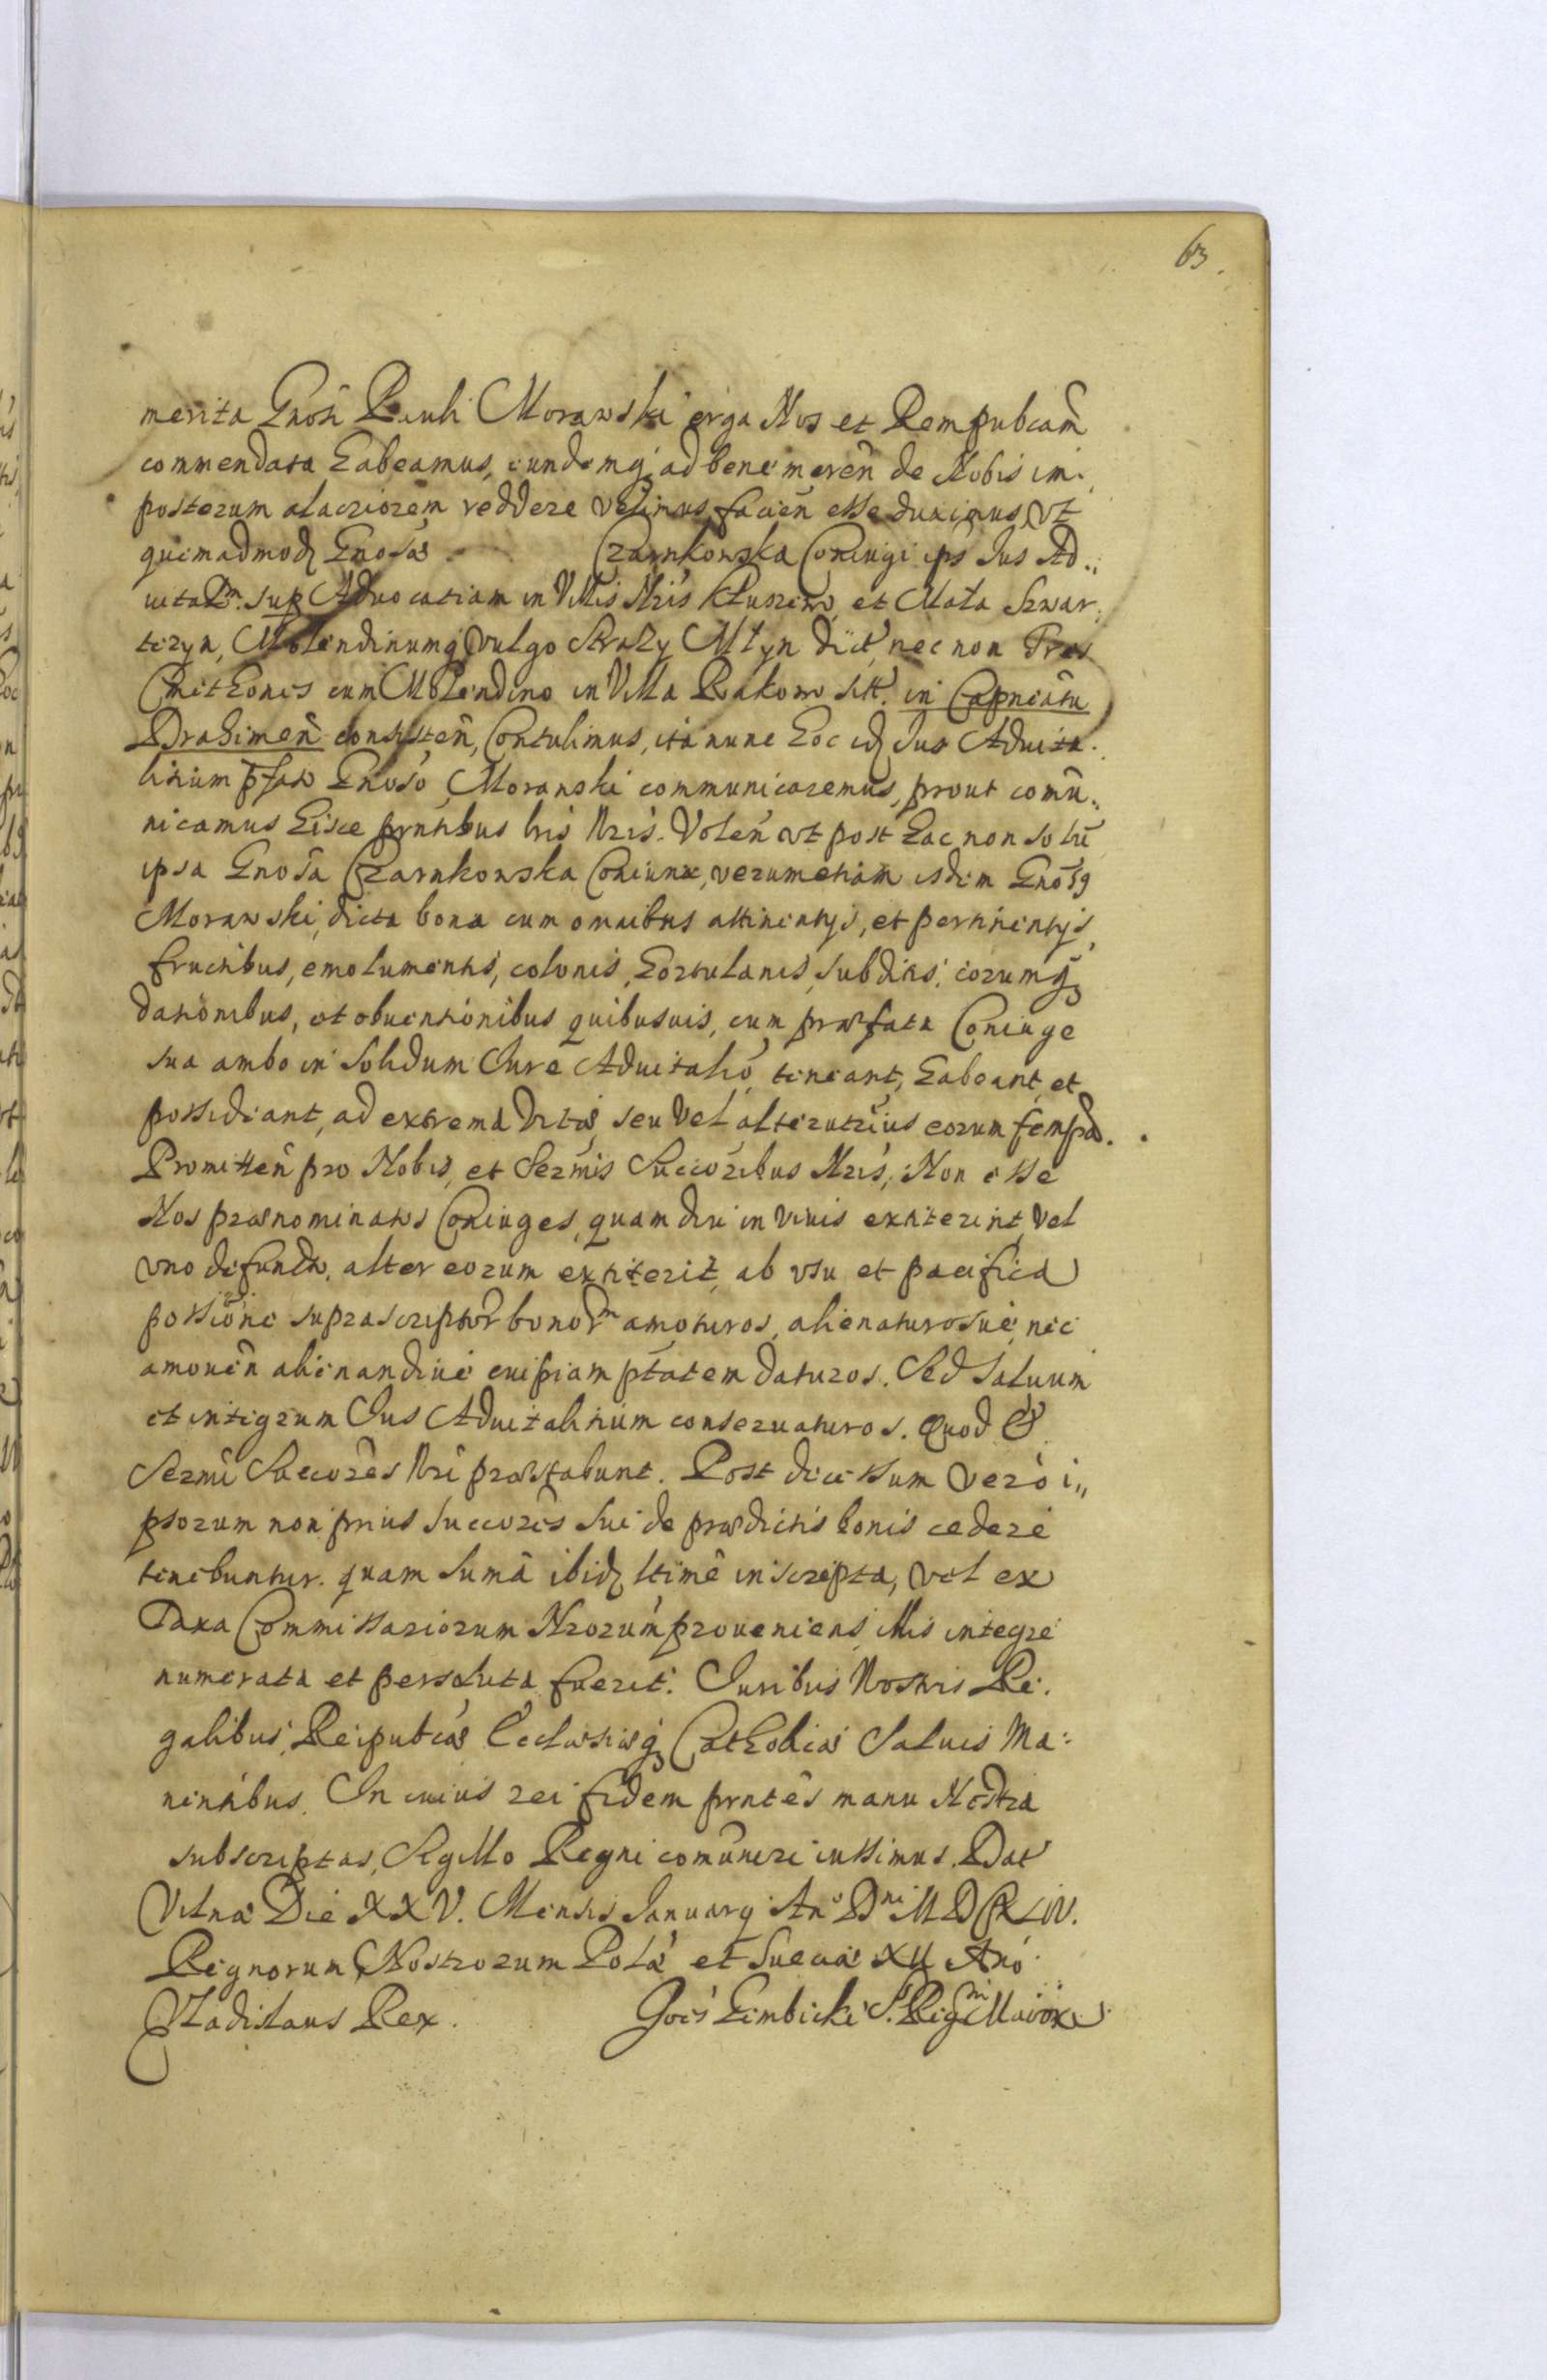 63.
merita Gnosi Pauli Morawski erga Nos et Rempubcam̃
commendata habeamus, eundemq; ad bene mereñ de Nobis im
posterum alacriorem reddere velimus, facieñ esse duximus, vt
quemadmodq Gnosæ Czarnkowska Coniugi ips Ius Ad„
uitale sup Aduocatiam in Villis Nris Kluszewo et Mała Szwar„
tczyn, Molendinumq vulgo Straży Młyn dict, nec non Tres
Cmethones cum Molendino in Villa Rakowo sitt. in Capneatu
Drahimeñ consisteñ, Contulimus, ita nunc hoc idq Ius Aduita.
litium pfato Gnoso Morawski communicaremus, prout comũ„
nicamus hisce prntibus lris Nris. Voleñ vt post hac non solũ
ipsa Gnosa Czarnkowska Coniunx, verumetiam isdem Gnos9
Morawski, dicta bona cum omnibus attinentijs, et pertinentijs,
fructibus, emolumentis, colonis, hortulanis, subditis, eorumq
dationibus, et obuentionibus quibusuis, cum præfata Coniuge
sua ambo in solidum Iure Aduitalio teneant, habeant, et
possideant, ad extrema vitæ seu vel alterutrius eorum tempora.
Promitteñ pro Nobis, et Sermis Succoribus Nris, Non esse
Nos prænominatos Coniuges, quam diu in viuis extiterint, vel
vno defuncto, alter eorum extiterit, ab vsu et pacifica
possione suprascriptor bonorm amoturos, alienaturosue, nec
amoueñ alienandiue cuipiam ptatem daturos. Sed saluum
et integrum Ius Aduitalitium conseruaturos. Quod &
Sermi Succores Nri præstabunt. Post decessum vero i„
psorum non prius succores sui de prædictis bonis cedere
tenebuntur. quam suma ibidq ltime inscripta, vel ex
Taxa Commissariorum Nrorum proueniens, illis integre
numerata et persoluta fuerit. Iuribus Nostris Re.
galibus, Reipubcæ Ecclesiæq Catholicæ Saluis Ma„
nentibus. In cuius rei fidem prntes manu Nostra
subscriptas, Sigillo Regni comuniri iussimus. Dat
Vilnæ Die XXV. Mensis Ianuarij Ano Dni MDCXLIV.
Regnorum Nostrorum Polæ et Sueciæ XII Ano
Vladislaus Rex. Gois Gembicki S. Regni Maior